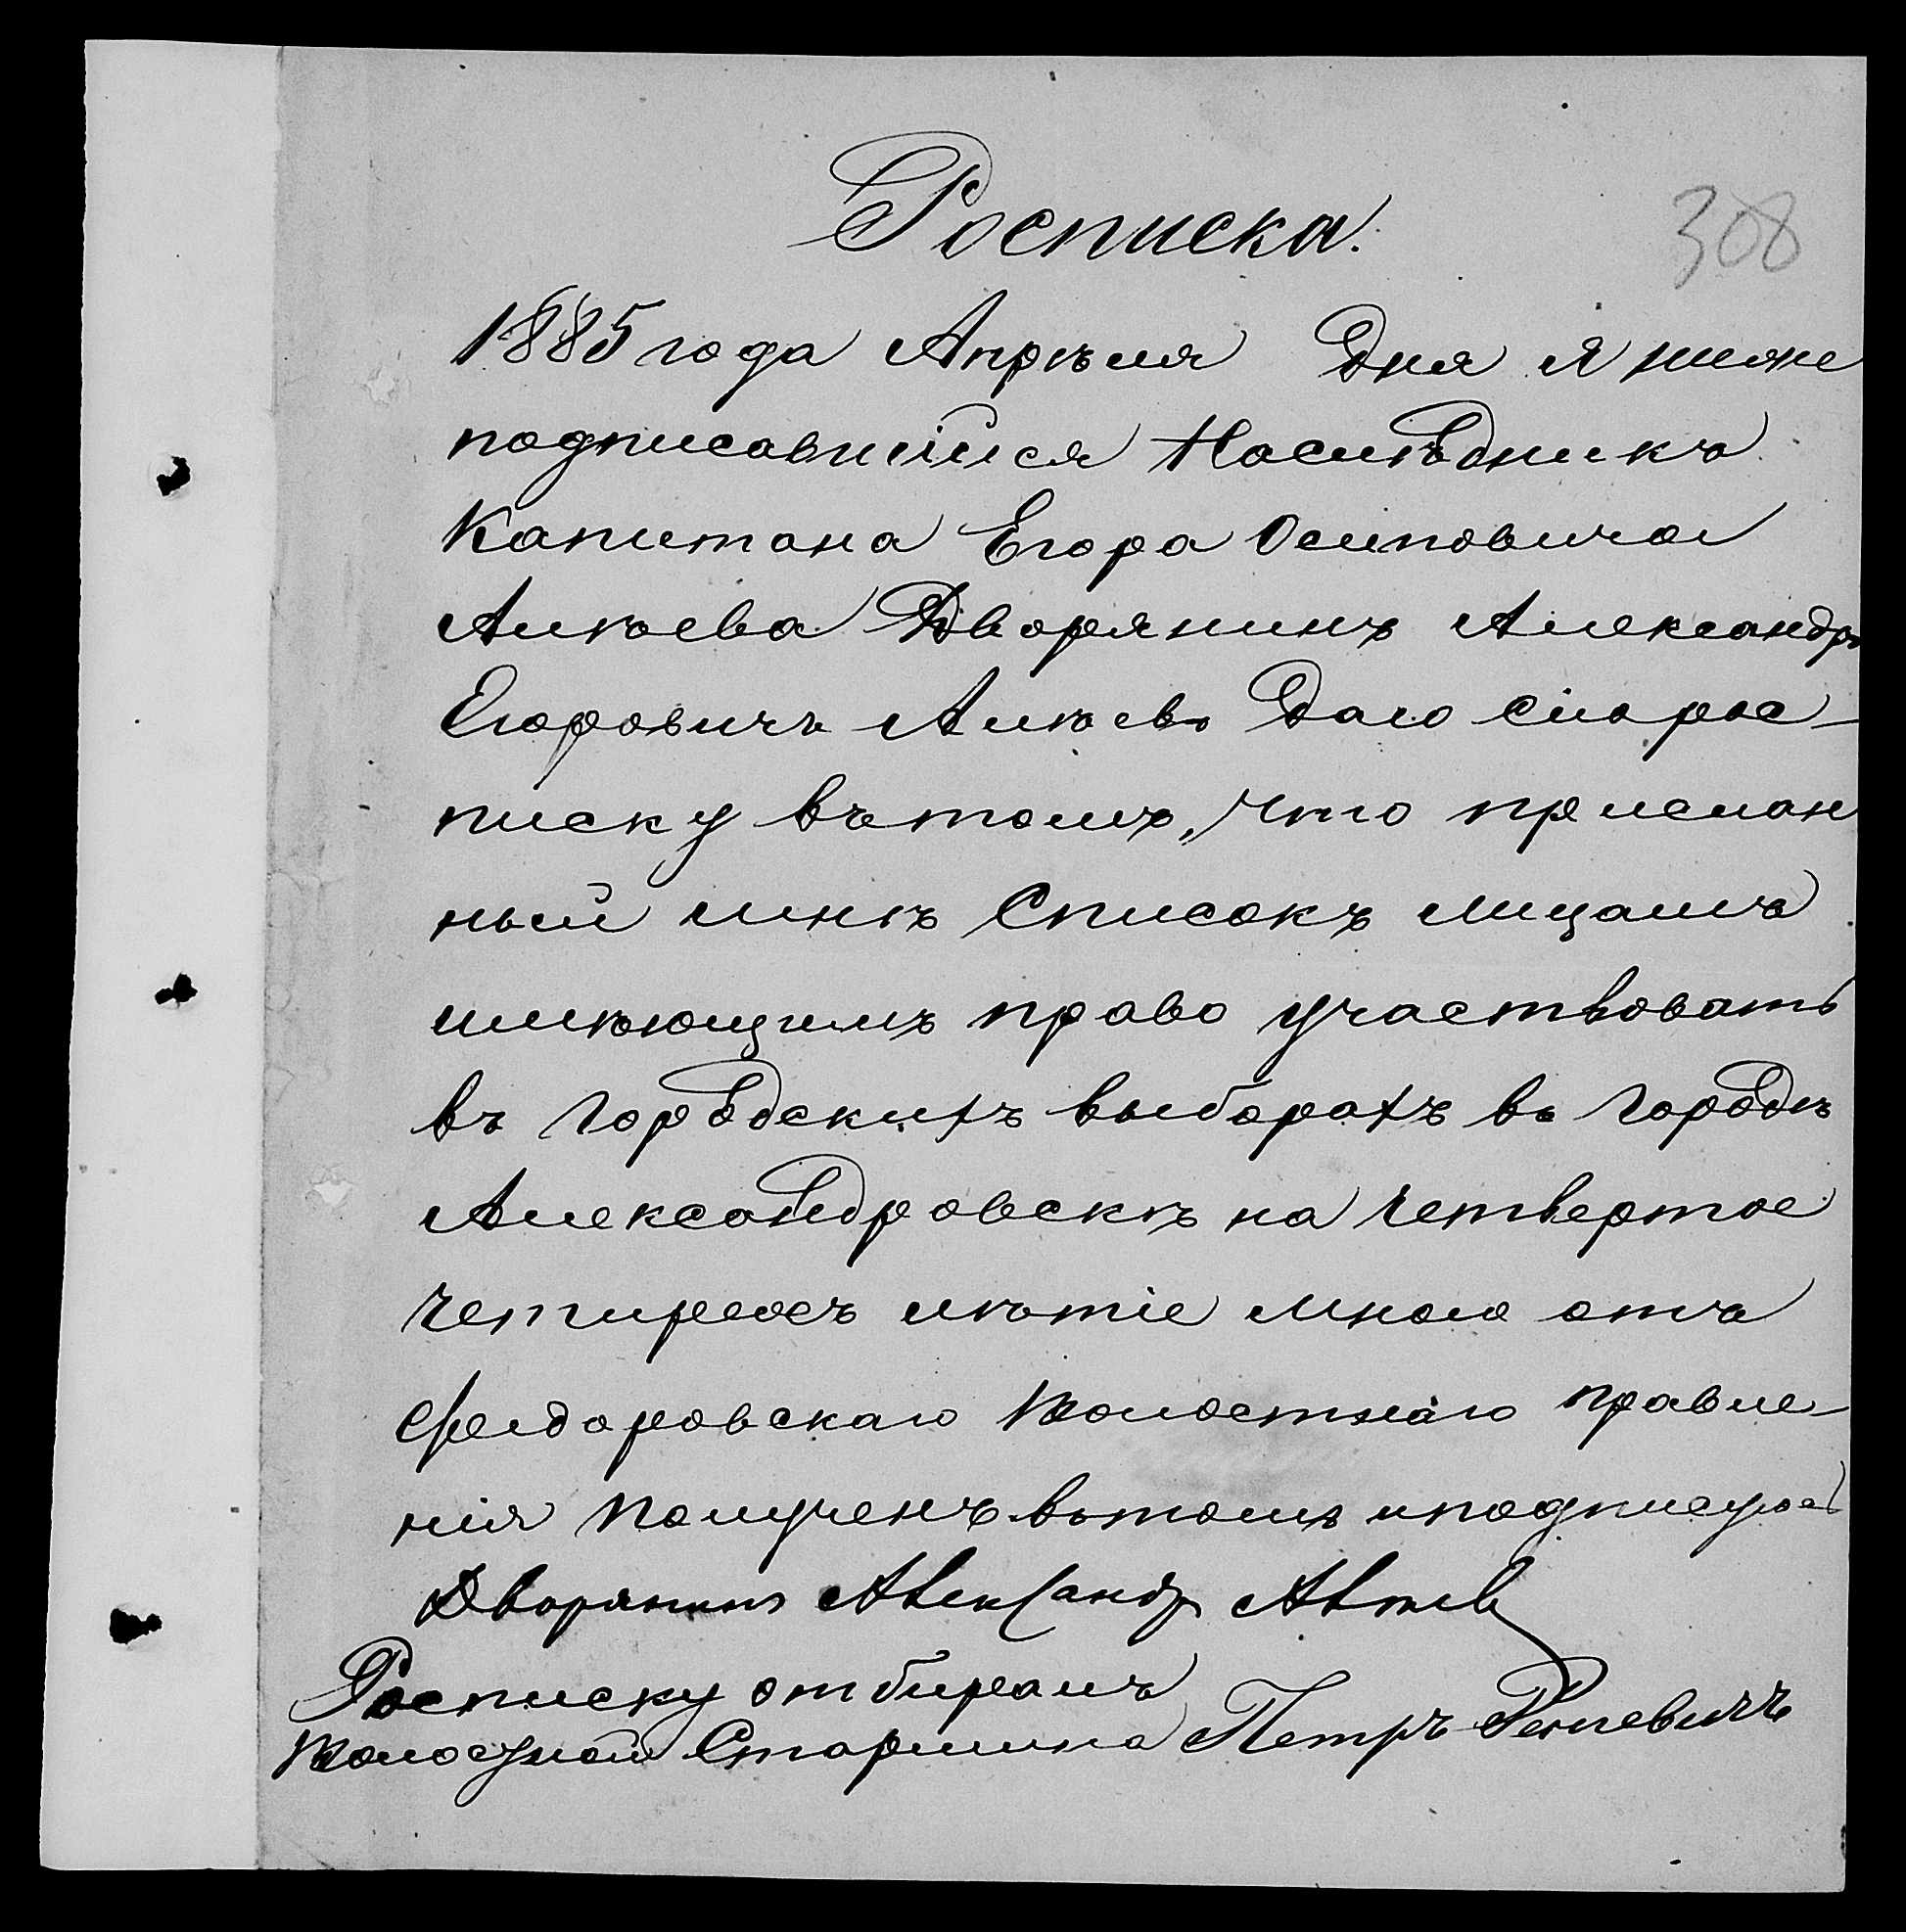 Росписка.
308
1885 года Апрѣля Дня я ниже
подписавшійся Наслѣдникъ
Капитана Егора Осиповича
Алѣева Дворянинъ Александръ
Егоровичъ Алѣевъ Даю сію рос-
писку въ томъ, что прислан
ный мнѣ Списокъ лицамъ
имѣющимъ право участвовать
въ Городскихъ выборахъ въ Городѣ
Александровскѣ на четвертое
четирехъ лѣтіе мною отъ
Феодоровскаго Волостнаго правле-
нія полученъ въ томъ и подписуюсь
Дворянинъ Александръ
Росписку отбиралъ
Волостной Старшина Петръ